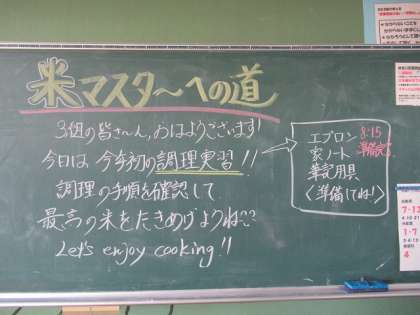 米マスタ～への道
3組の皆さ～ん，おはようございます!
今日は 今年初の調理実習!!
調理の手順を確認して
最高の米をたきあげようね??
Let's enjoy cooking!!
エプロン
家ノート
筆記用具
〈準備してね!〉
8:15
準備完了